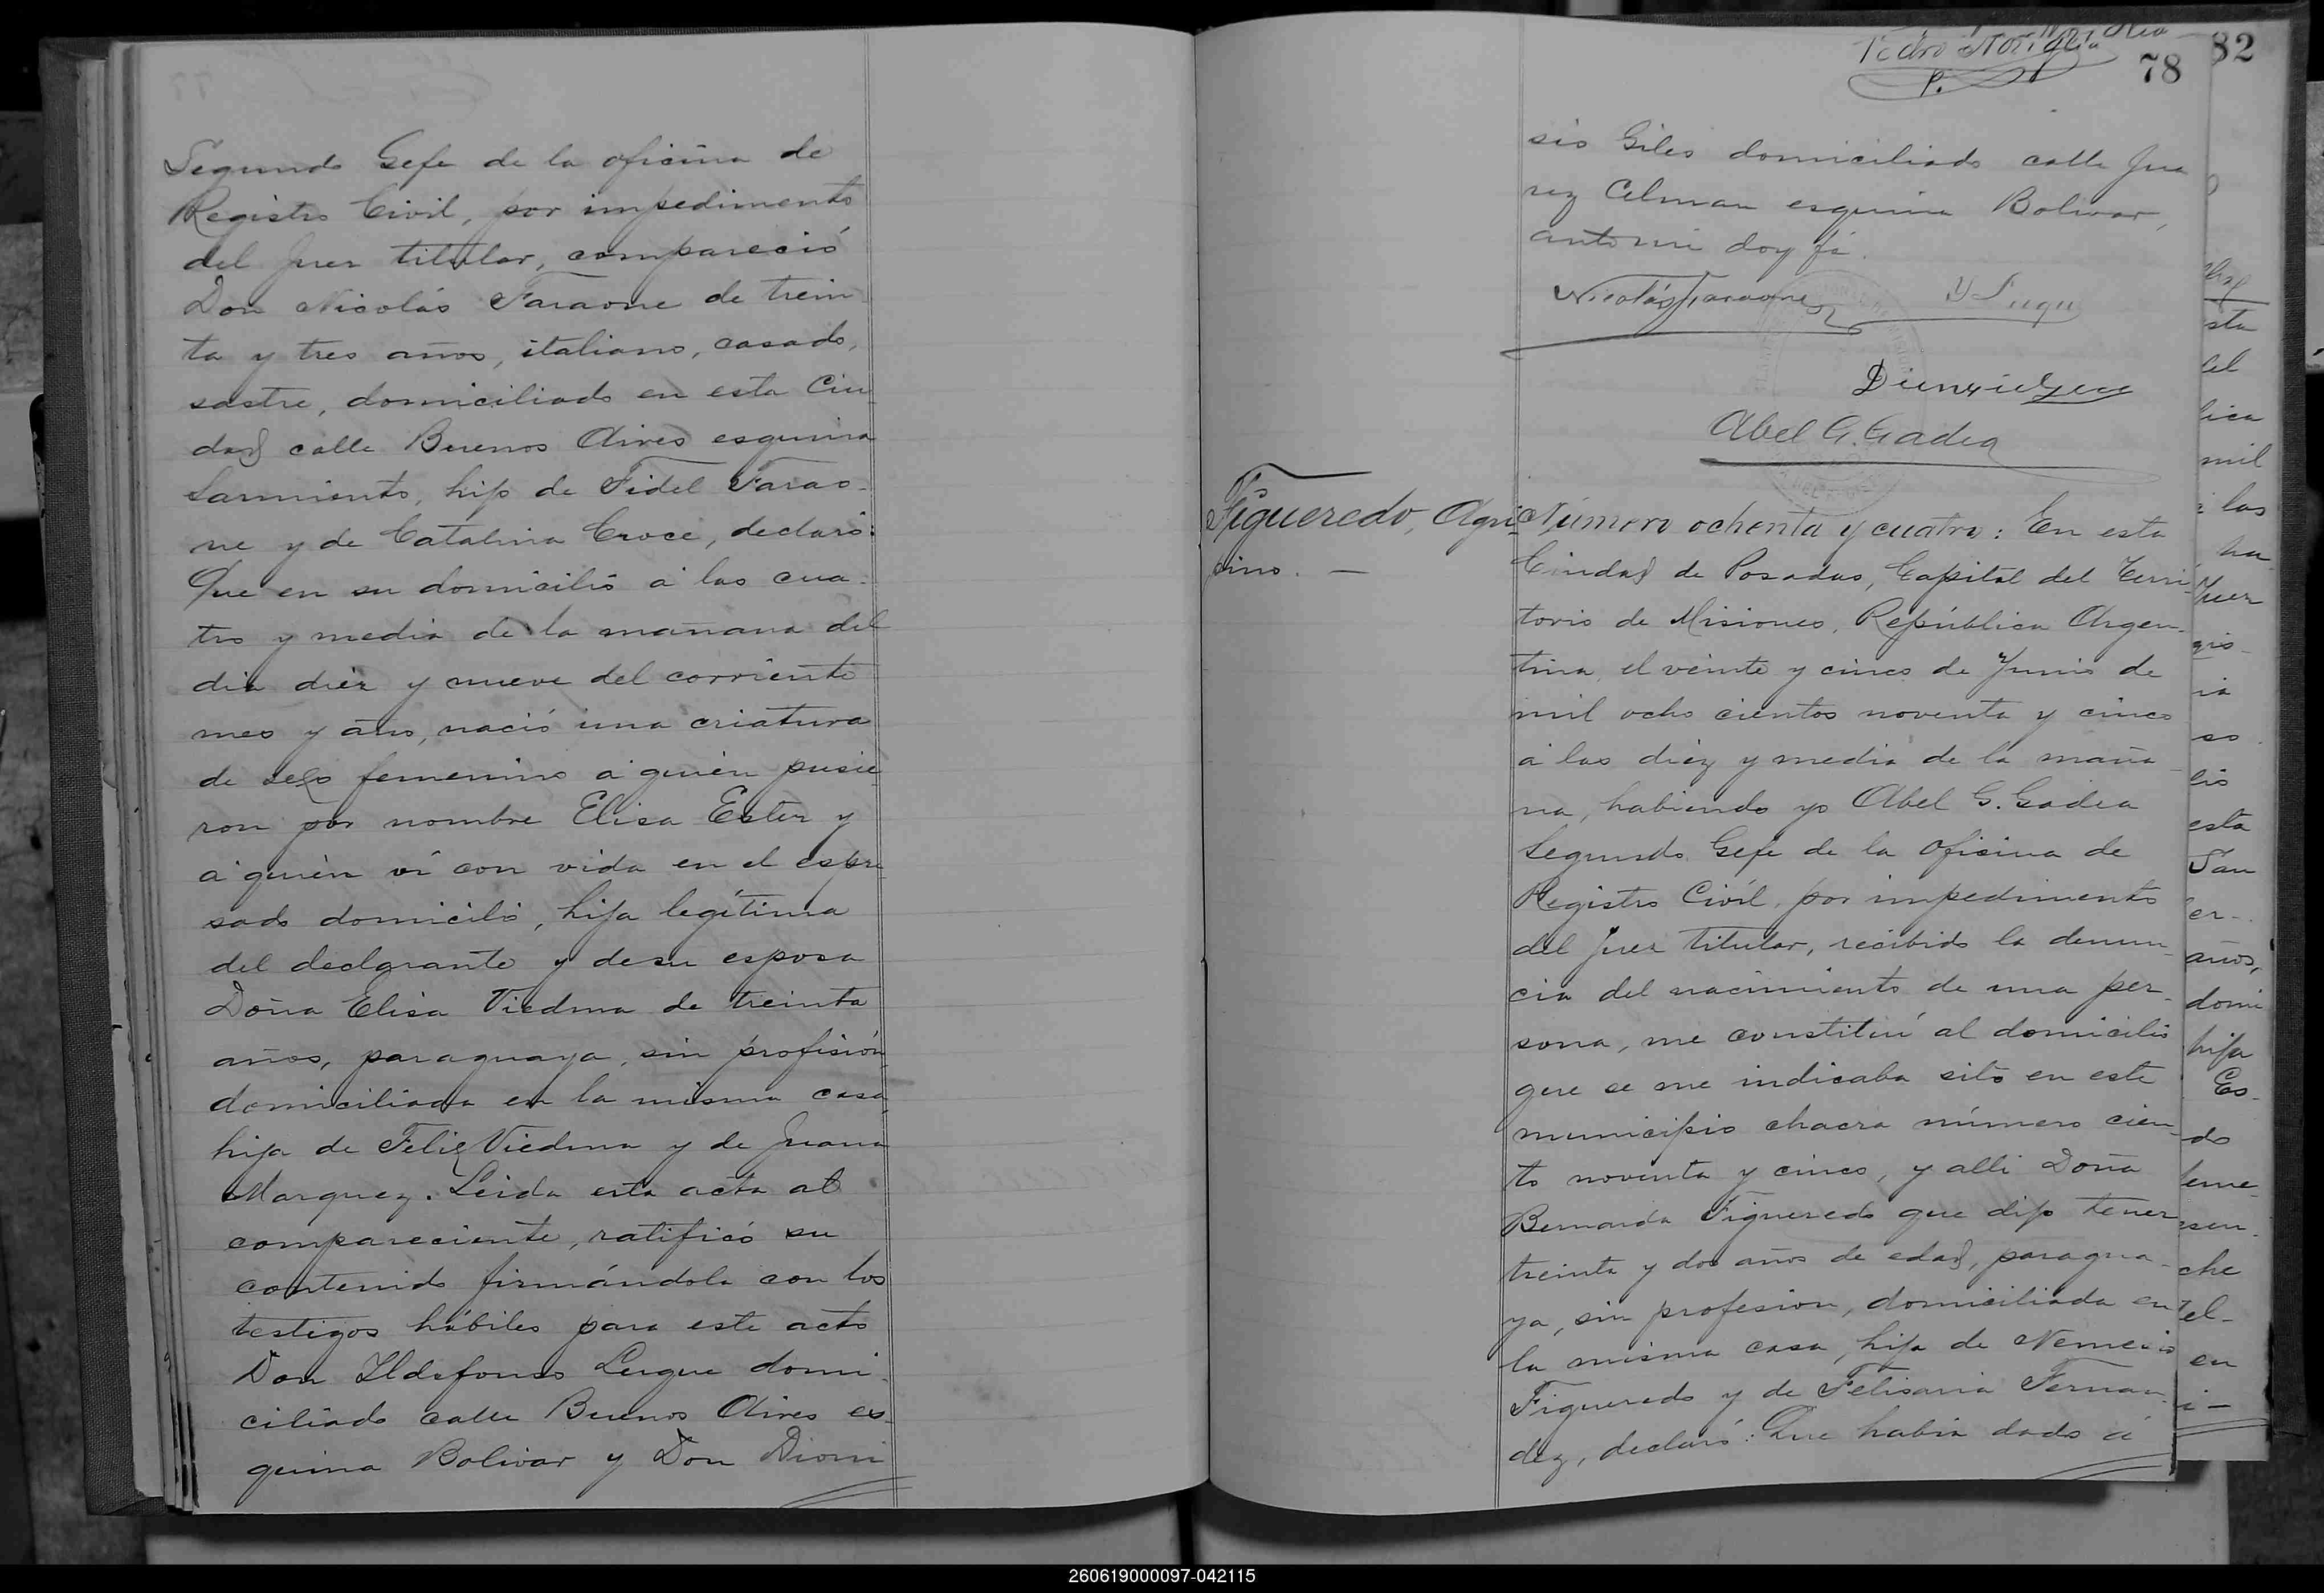 Segundo Gefe de la oficina de
Registro Civil, por impedimento
del Juez titular, compareció
Don Nicolás Faraone de trein
ta y tres años, italiano, casado,
sastre, domiciliado en esta Ciu
dad calle Buenos Aires esquina
Sarmiento, hijo de Fidel Farao-
ne y de Catalina Croce, declaró:
Que en su domicilio á las cua-
tro y media de la mañana del
dia diez y nueve del corriente
mes y año, nació una criatura
de sexo femenino á quién pusie
ron por nombre Elisa Ester y
á quién ví con vida en el espre
sado domicilio, hija legítima
del declarante y de su esposa
Doña Elisa Viedma de treinta
años, paraguaya, sin profisión
domiciliada en la misma casa,
hija de Feliz Viedma y de Juana
Marquez. Leida esta acta al
compareciente, ratificó su
contenido firmándola con los
testigos hábiles para este acto
Don Ildefonso Luque domi-
ciliado calle Buenos Aires es-
quina Bolivar y Don Dioni
Pedro Noriglia
78
82
sio Giles domiciliado calle Jua
rez Celman esquina Bolivar,
ante mi doy fé.
Nicolás Faraone
Y Luque
Abel G. Gadea
Figueredo, Agri-
pino. —
Número ochenta y cuatro: En esta
Ciudad de Posadas, Capital del Terri-
torio de Misiones, República Argen-
tina, el veinte y cinco de Junio de
mil ocho cientos noventa y cinco
á las diez y media de la maña
na, habiendo yo Abel G. Gadea
Segundo Gefe de la Oficina de
Registro Civil, por impedimento
del Juez titular, recibido la denun-
cia del nacimiento de una per-
sona, me constituí al domicilio
que se me indicaba sito en este
municipio chacra número cien-
to noventa y cinco, y alli Doña
Bernarda Figueredo que dijo tener
treinta y dos años de edad, paragua-
ya, sin profesion, domiciliada en
la misma casa, hija de Nemesio
Figueredo y de Felisaria Fernan-
dez, declaró: Que habia dado á
260619000097-042115